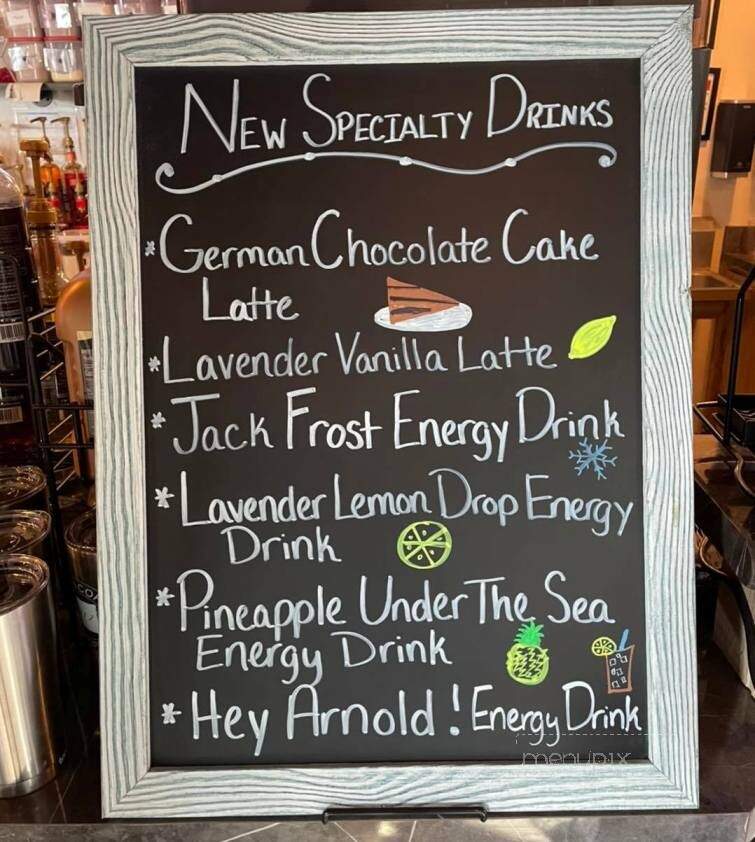 New Specialty Drinks
* German Chocolate Cake
Latte
* Lavender Vanilla Latte
* Jack Frost Energy Drink
* Lavender Lemon Drop Energy
Drink
* Pineapple Under The Sea
Energy Drink
* Hey Arnold! Energy Drink
menupix